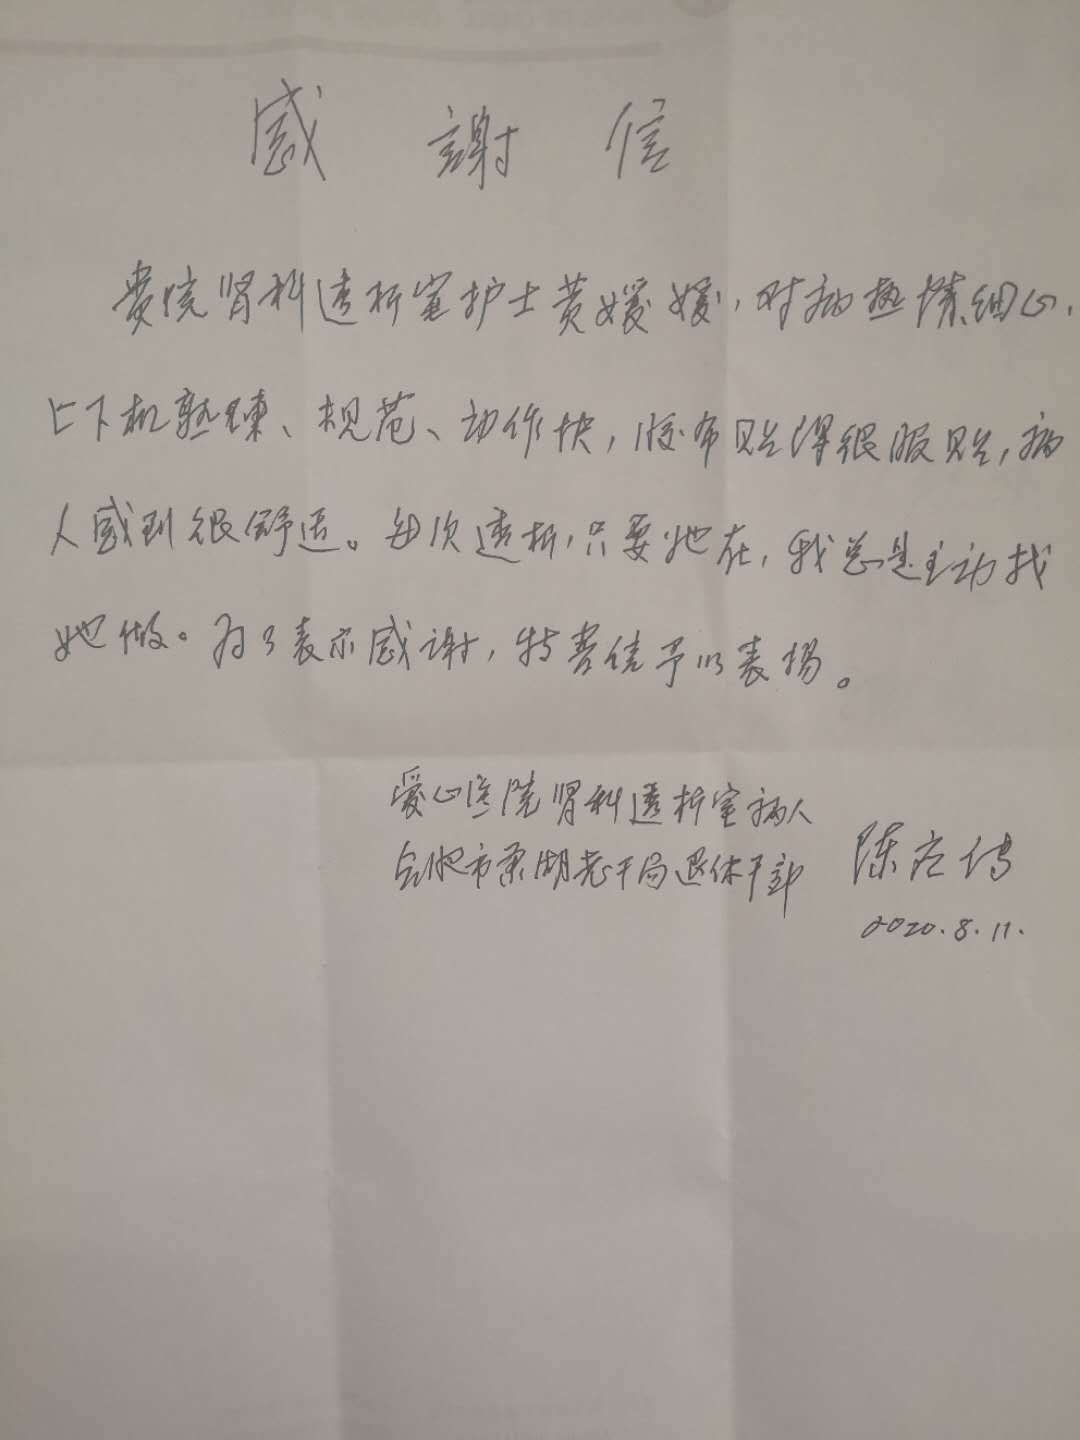 感謝信
贵院肾科透析室护士黄媛媛，对病热情细心，
上下机熟练、规范、动作快，胶布贴得很服贴，病
人感到很舒适。每次透析，只要她在，我总是主动找
她做。为了表示感谢，特书信予以表扬。
爱心医院肾科透析室病人
合肥市巢湖老干局退休干部 陈应传
2020.8.11.